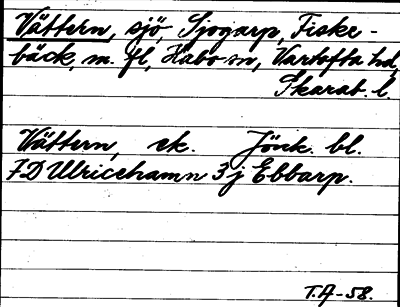 Vättern, sjö, Sjogarp, Fiske-
bäck, m. fl, Habo sn, Vartofta hd,
Skarab. l.
Vättern, ek. Jönk. bl.
7D Ulricehamn 3j Ebbarp.
T.A-58.